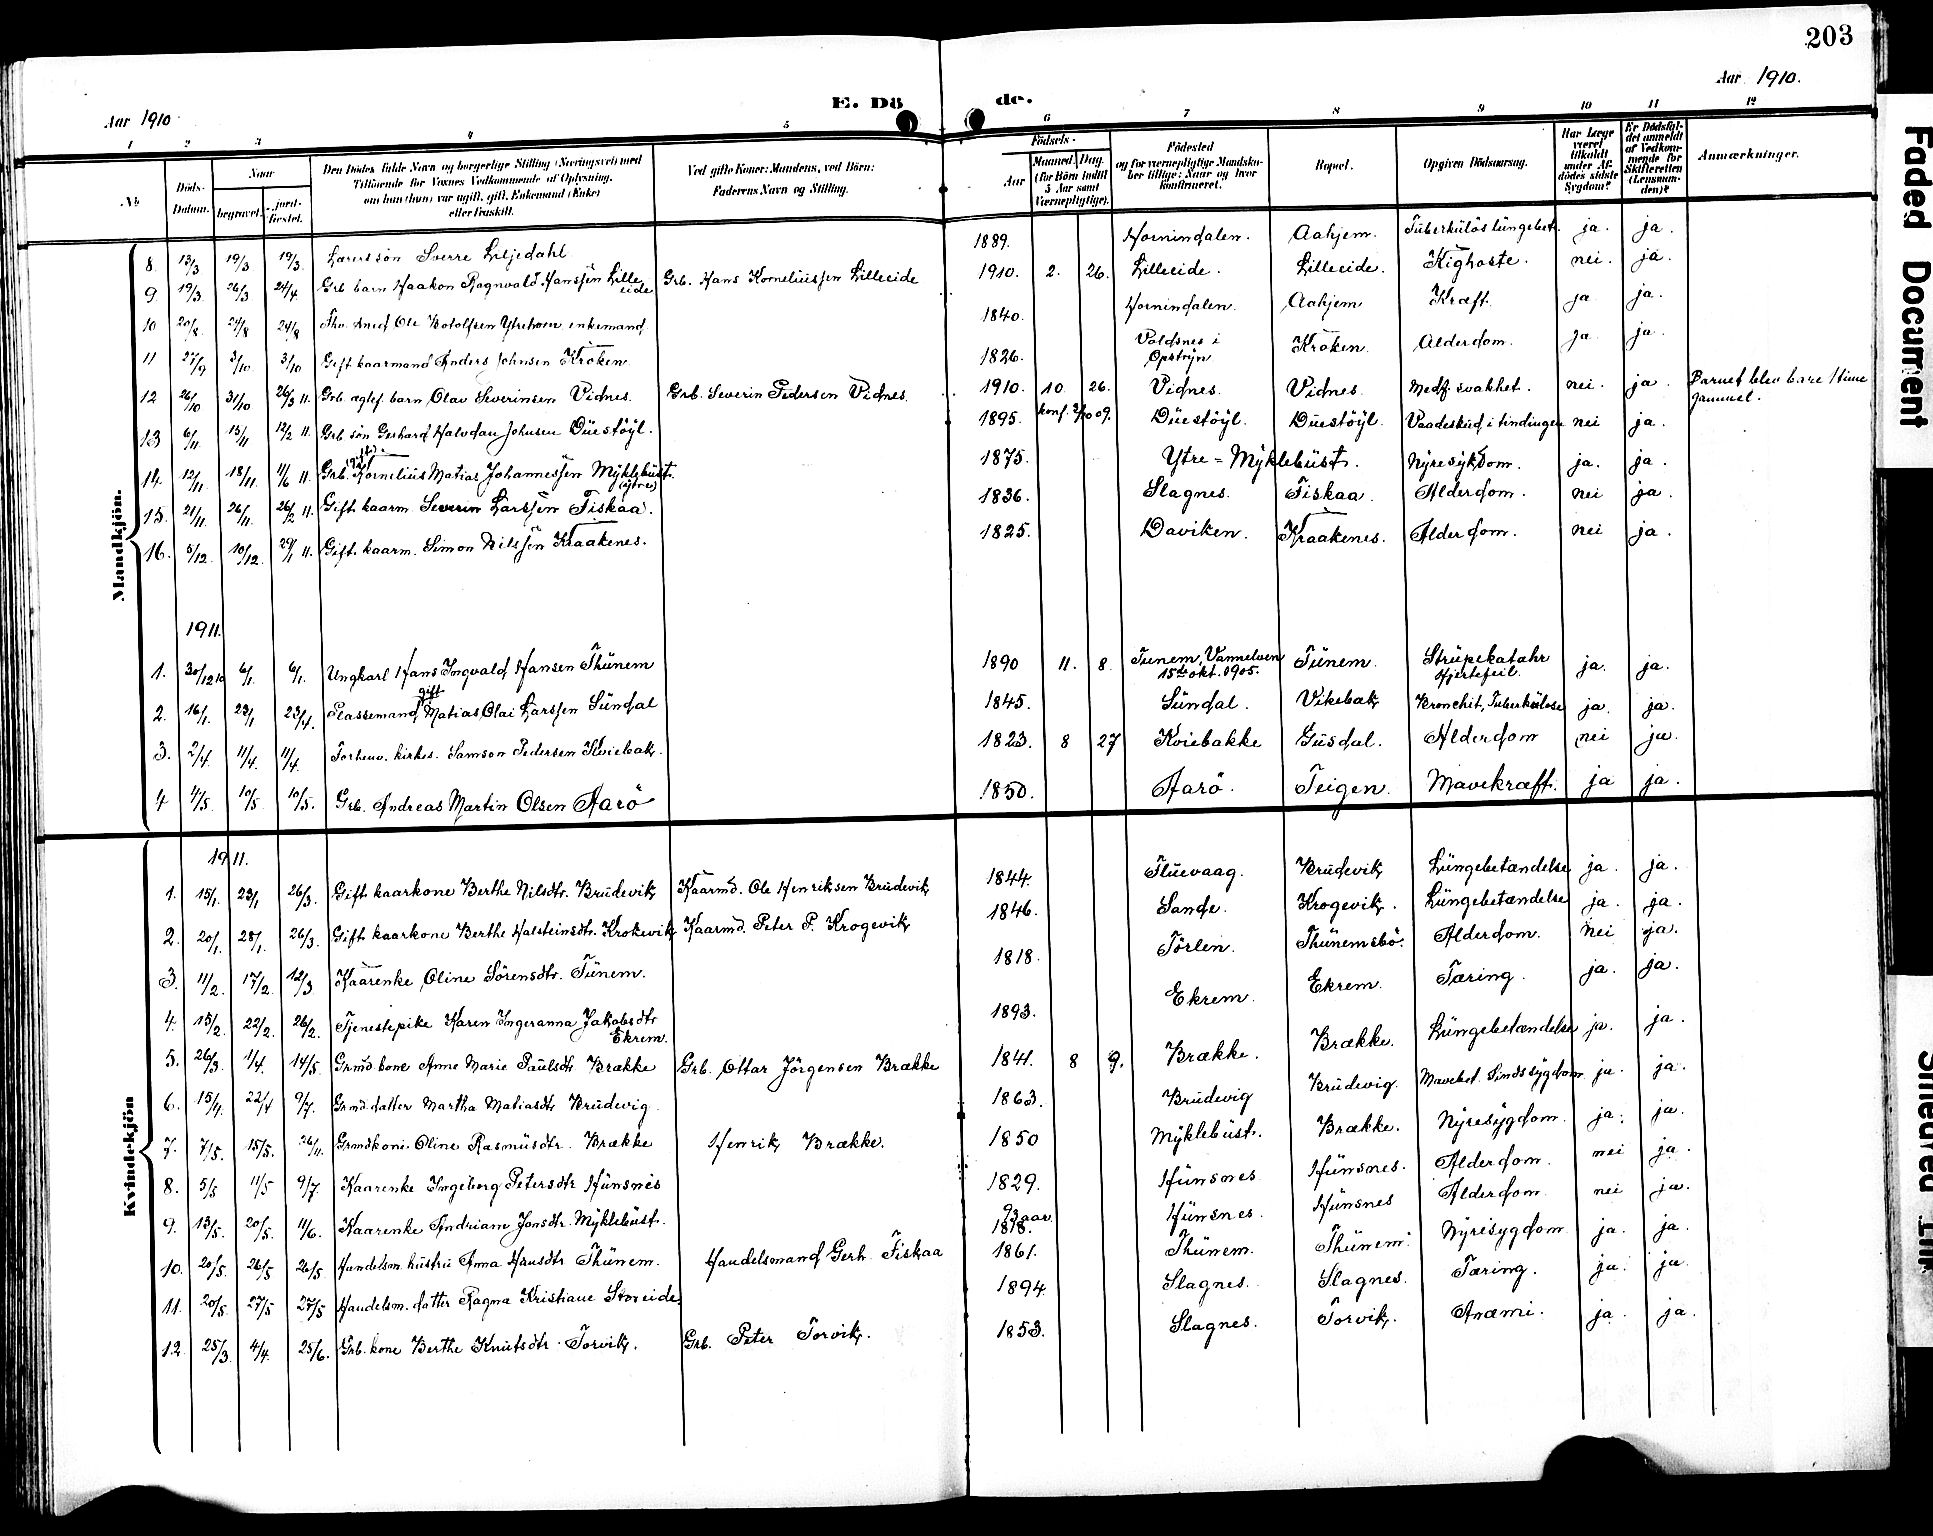 203
Aar 1910.
Aar 1910
E. Dö de.
1 2 3 4 5 6 7 8 9 10 11 12
No
Döds-Datum.
Naar
begravet.
jord-fæstet.
Den Dödes fulde Navn og borgerlige Stilling (Næringsvei) med
Tilföiende for Voxnes Vedkommende af Oplysning,
om han (hun) var ugift, gift, Enkemand (Enke)
eller fraskilt.
Ved gifte Koner: Mandens, ved Börn:
Faderens Navn og Stilling.
Födsels-
Aar
Maaned. Dag.
(for Börn indtil
5 Aar samt
Værnepligtige).
Födested
og for værnepligtige Mandsku-
ber tillige: Naar og hvor
konfirmeret.
Bopæl.
Opgiven Dödsaarsag.
Har Læge
været
tilkaldt
under Af-
dödes sidste
Sygdom?
Er Dödsfal-
det anmeldt
af Vedkom-
mende for
Skifteretten
(Lensman-
den)?
Anmærkninger.
Mandkjön.
8. 13/3 19/3 19/3 Lærerssön Sverre Liljedahl 1889. Hornindalen. Aahjem. Tuberkülös lüngebet. ja. ja.
9. 19/3 26/3 24/4 Grb barn Haakon Ragnvald Hanssen Lilleeide Grb. Hans Korneliussen Lilleeide 1910. 2. 26. Lilleeide. Lilleeide. Kighoste. nei. ja.
10 20/8 24/8 24/8 Fhv. Ole Botolfsen Ytrehorn enkemand 1840. Hornindalen. Aahjem Kræft. ja ja.
11 27/9 3/10 3/10 Gift kaarmand Anders Johnsen Kroken 1826. Voldsnes i Opstryn Kroken. Alderdom. ja. ja.
12 26/10 31/10 26/3 11. Grb. ægtef. barn Olav Severinsen Vidnes. Grb. Severin Pedersen Vidnes. 1910. 10. 26. Vidnes. Vidnes. Medf. svakhet. nei. ja. Barnet blev bare 1 time gammel.
13 6/11 13/11 12/2 11. Grb. sön Gerhard Halvdan Johnsen Düestöyl. 1895. konf. 3/10 09. Düestöyl. Düestöyl. Vaadeskud i tindingen nei ja.
14. 12/11 18/11. 11/6 11. Grb. (gift) Kornelius Matias Johannessen Myklebüst. (ytre) 1875. Ytre = Myklebüst. Nyresykdom. ja. ja.
15. 21/11. 26/11. 26/2 11. Gift kaarm Severin Larssen Fiskaa. 1836. Slagnes. Fiskaa. Alderdom. nei ja.
16. 5/12. 10/12. 29/1 11. Gift kaarm. Simon Nilssen Kraakenes. 1825. Daviken. Kraakenes. Alderdom. nei ja.
1911.
1. 30/12 10 6/1. 6/1. Ungkarl Hans Ingvald Hansen Thünem 1890 11. 8. Tunem, Vannelven 15de okt. 1905. Tünem. Strüpekatahr Hjertefeil. ja. ja.
2. 16/1. 23/1 23/4. Plassemand gift Matias Olai Larssen Sündal 1845. Sündal. Vikebak Bronchit, Tuberkülose ja. ja.
3. 2/4. 11/4. 11/4. Forhenv. kirkes. Samson Pedersen Kviebak. 1823. 8 27 Kviebakke Gusdal. Alderdom nei ja.
4 4/5. 10/5. 10/5. Grb. Andreas Martin Olsen Aarö 1850. Aarö. Teigen. Mavekræft. ja ja.
Kvindekjön
1911.
1. 15/1. 23/1 26/3. Gift kaarkone Berthe Nilsdtr. Brüdevik Kaarmd. Ole Henriksen Brüdevik 1844. Flüevaag. Brüdevik Lüngebetændelse ja. ja.
2. 20/1. 28/1. 26/3. Gift kaarkone Berthe Halsteinsdtr. Krokevik Kaarmd. Peter P. Krogevik 1846. Sande. Krogevik. Lüngebetændelse ja. ja.
3. 11/2. 17/2. 12/3 Kaarenke Oline Sörensdtr. Tünem. 1818. Törlen. Thünemsbö. Alderdom. nei ja.
4. 15/2. 22/2. 26/2. Tjenestepike Karen Ingeranna Jakobsdtr Ekrem. 1893. Ekrem. Ekrem. Tæring. ja. ja.
5. 26/3 1/4. 14/5 Grmd. kone Anne Marie Paulsdtr Brække Grb. Ottar Jörgensen Brække 1841. 8 9. Brække. Brække. Lüngebetændelse ja. ja.
6. 15/4. 22/4 9/7. Grmd. datter Martha Matiasdtr Brüdevig. 1863. Brüdevig Brüdevig. Mavebet. Sindssygdom ja. ja.
7. 7/5. 15/5. 26/11. Grmdkone. Oline Rasmüsdtr. Brække Henrik Brække. 1850 Myklebüst. Brække. Nyresygdom. ja. ja.
8. 5/5 11/5 9/7. Kaarenke Ingeborg Petersdtr Hünsnes 1829. Hünsnes Hünsnes. Alderdom. nei ja.
9. 13/5. 20/5. 11/6. Kaarenke Andriane Jonsdtr. Myklebüst. 93 aar 1818. Hünsnes. Hünsnes Alderdom. nei ja.
10. 20/5. 26/5 26/5 Handelsm. hüstrü Anna Hansdtr Thünem. Handelsmand Gerh. Fiskaa 1861. Thünem. Thünem. Nyresygdom ja. ja.
11. 20/5 27/5 27/5 Handelsm. datter Ragna Kristiane Storeide. 1894 Slagnes. Slagnes. Tæring. ja. ja.
12. 25/3. 4/4. 25/6. Grb. kone Berthe Knutsdtr Torvik. Grb. Peter Torvik. 1853. Slagnes. Torvik. Anæmi. ja. ja.
Faded Document
Smeared Ink